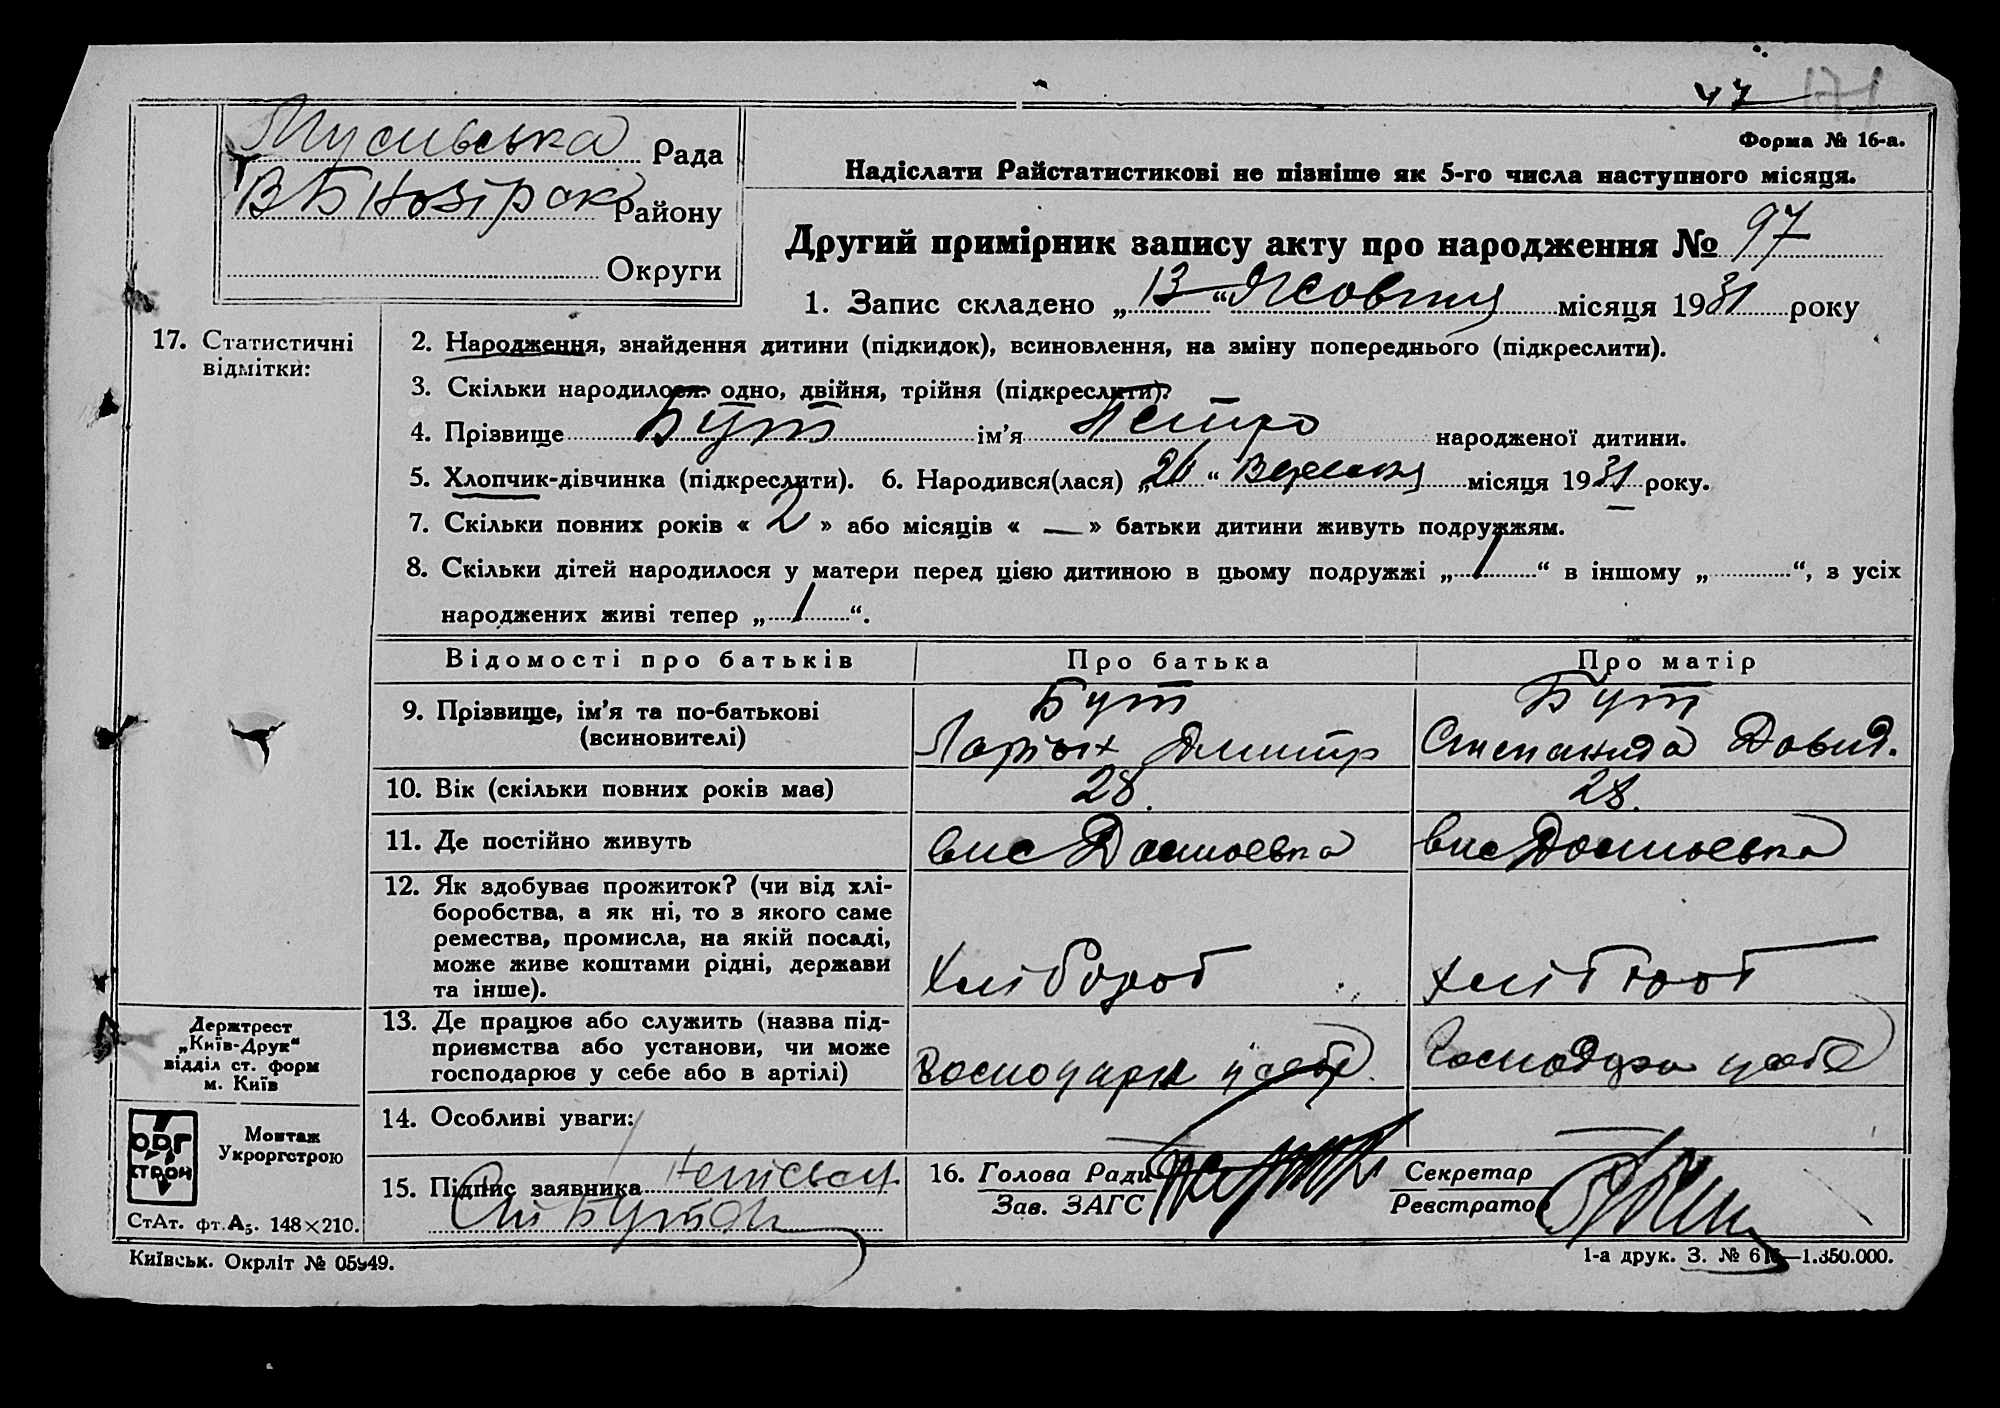 47 171
Форма № 16-а.
Мусіївська Рада
Району
Округи
Надіслати Райстатистикові не пізніше як 5-го числа наступного місяця.
Другий примірник запису акту про народження № 97
1. Запис складено „13“ Жовтня місяця 1931 року
17. Статистичні відмітки:
2. Народження, знайдення дитини (підкидок), всиновлення, на зміну попереднього (підкреслити).
3. Скільки народилося: одно, двійня, трійня (підкреслити)?
4. Прізвище Бут ім’я Петро народженої дитини.
5. Хлопчик-дівчинка (підкреслити). 6. Народився(лася) „26“ Вересня місяця 1931 року.
7. Скільки повних років « 2 » або місяців « — » батьки дитини живуть подружжям.
8. Скільки дітей народилося у матери перед цією дитиною в цьому подружжі „1“ в іншому „“, з усіх
народжених живі тепер „1“.
Відомості про батьків Про батька Про матір
9. Прізвище, ім’я та по-батькові Бут Бут
(всиновителі) Дмитр Степанида Давид.
10. Вік (скільки повних років має) 28. 28.
11. Де постійно живуть
12. Як здобуває прожиток? (чи від хлі-
боробства, а як ні, то з якого саме
ремества, промисла, на якій посаді,
може живе коштами рідні, держави Хлібороб хлібороб
та інше).
13. Де працює або служить (назва під-
приємства або установи, чи може
господарює у себе або в артілі) Господаря у себе Господарю у себе
14. Особливі уваги:
15. Підпис заявника
16. Голова Ради
Зав. ЗАГС
Секретар
Реєстратор
Держтрест
„Київ-Друк“
відділ ст. форм
м. Київ
ОРГ
СТРОЙ
Монтаж
Укроргстрою
СтАт. фт. А5. 148×210.
Київськ. Окрліт № 05949.
1-а друк. З. № 1.350.000.